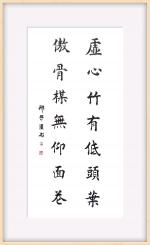 虛心竹有低頭葉
傲骨楳無仰面